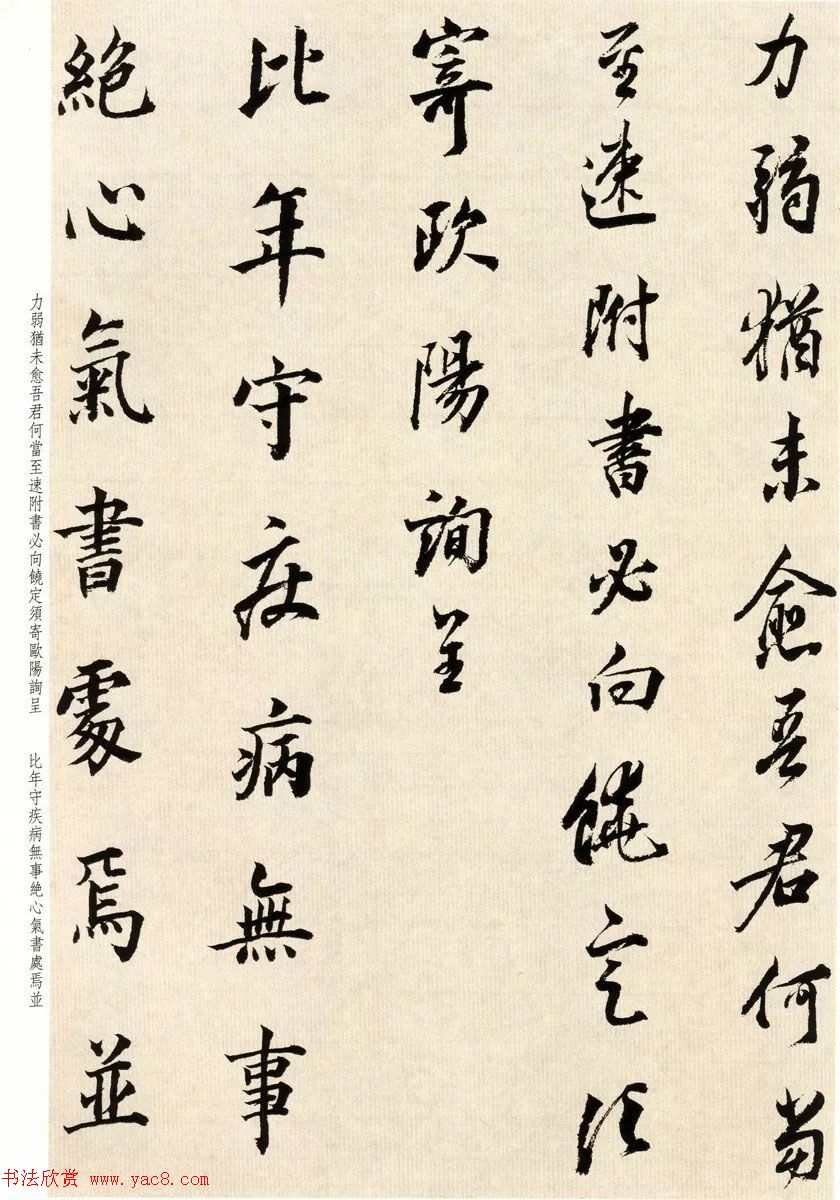 力弱猶未愈吾君何當
至速附書必向饒定須
寄歐陽詢呈
比年守疾病無事
絶心氣書處焉並
力弱猶未愈吾君何當至速附書必向饒定須寄歐陽詢呈　比年守疾病無事絶心氣書處焉並
书法欣赏 www.yac8.com